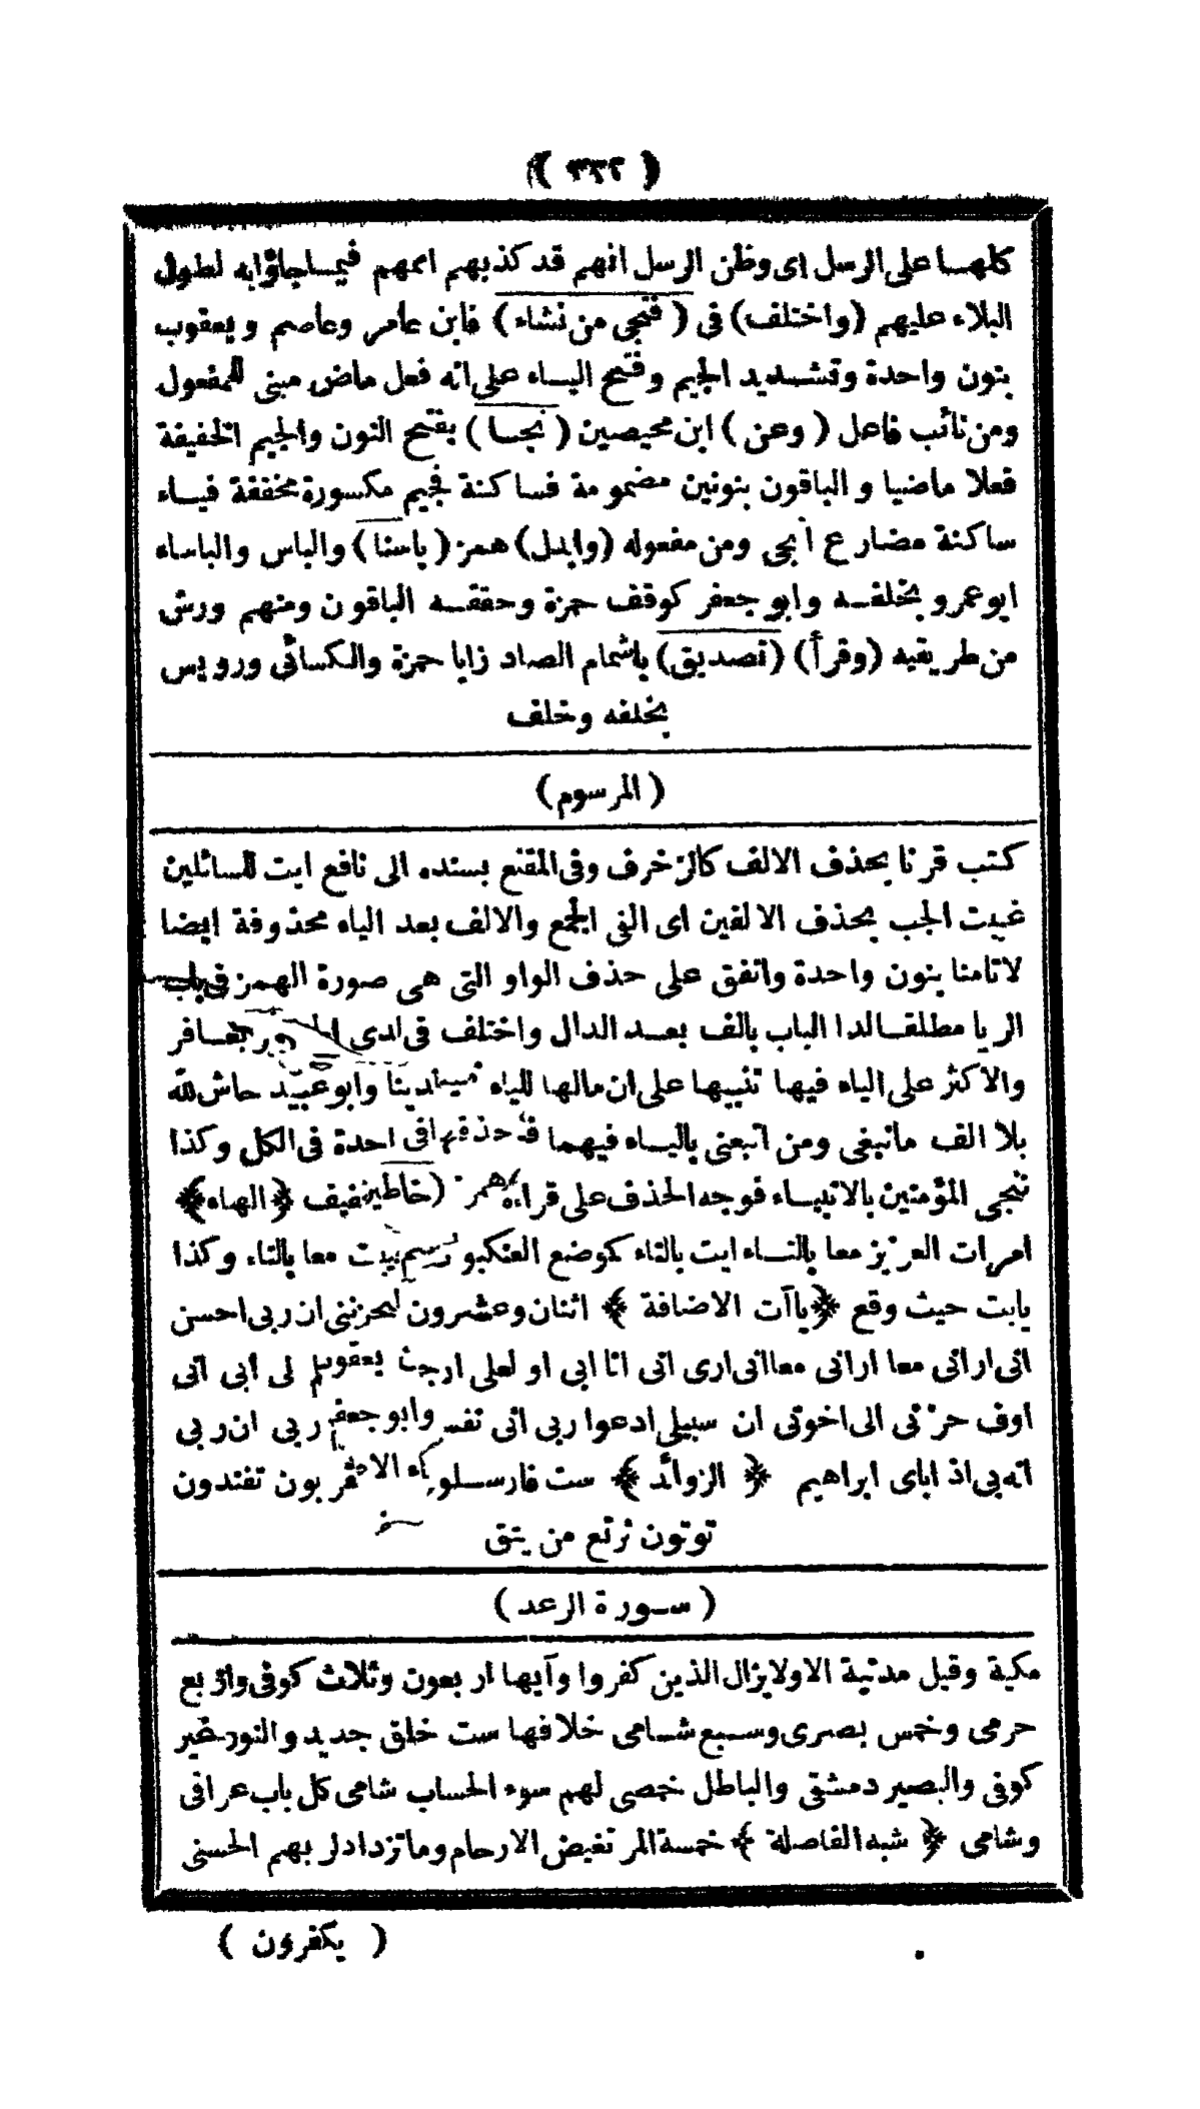 ( ٣٣٢ )
كلهـا على الرسل اى وظن الرسل انهم قد كذبهم اممهم فيمـا جاؤا به لطول
البلاء عليهم (واختلف) فى ( فنجى من نشاء ) فابن عامر وعاصم و يعقوب
بنون واحدة وتشـديد الجيم وفتح اليـاء على انه فعل ماض مبنى للمفعول
ومن نائب فاعل ( وعن ) ابن محيصين ( نجـا ) بفتح النون والجيم الخفيفة
فعلا ماضيا و الباقون بنونين مضمومة فساكنة فجيم مكسورة مخففة فيـاء
ساكنة مضارع أنجى ومن مفعوله (وابدل) همز ( باسنا ) والباس والباساء
ابو عمرو بخلفـه وابو جعفر كوقف حمزة وحققـه الباقون ومنهم ورش
من طريقيه (وقرأ) (تصديق) باشمام الصاد زايا حمزة والكسائى ورويس
بخلفه وخلف
( المرسوم )
كتب قرنا بحذف الالف كالزخرف وفى المقنع بسنده الى نافع ايت للسائلين
غيبت الجب بحذف الالفين اى الفى الجمع والالف بعد الياء محذوفة ايضا
لاتامنا بنون واحدة واتفق على حذف الواو التى هى صورة الهمز فى باب
الريا مطلقـا لدا الباب بالف بعـد الدال واختلف فى لدى
والاكثر على الياء فيها تنبيها على ان مالها للياء وابو عبيد حاش لله
بلا الف مانبغى ومن اتبعنى باليـاء فيهما احدة فى الكل وكذا
ننجى المؤمنين بالانبيـاء فوجه الحذف على قراءة (خاطين ﴿ الهاء ﴾
امرات العزيز معا بالتـاء ايت بالتاء كموضع العنكبو معا بالتاء وكذا
يابت حيث وقع ﴿ ياآت الاضافة ﴾ اثنان وعشرون ليحزننى ان ربى احسن
انى ارانى معا ارانى معا انى ارى انى انا ابى او لعلى ارجع لى أبى انى
اوف حزنى الى اخوتى ان سبيلى ادعوا ربى انى وابو جعفر ربى ان ربى
انه بى اذ اباى ابراهيم ﴿ الزوائد ﴾ ست فارسـلون تقربون تفندون
توتون نرتع من يتق
( سـورة الرعد )
مكية وقيل مدنية الا ولا يزال الذين كفروا وآيها اربعون وثلاث كوفى واربع
حرمى وخمس بصرى وسـبع شـامى خلافها ست خلق جديد والنور غير
كوفى والبصير دمشقى والباطل حمصى لهم سوء الحساب شامى كل باب عراقى
وشامى ﴿ شبه الفاصلة ﴾ خمسة المر تغيض الارحام وما تزداد لربهم الحسنى
( يكفرون )